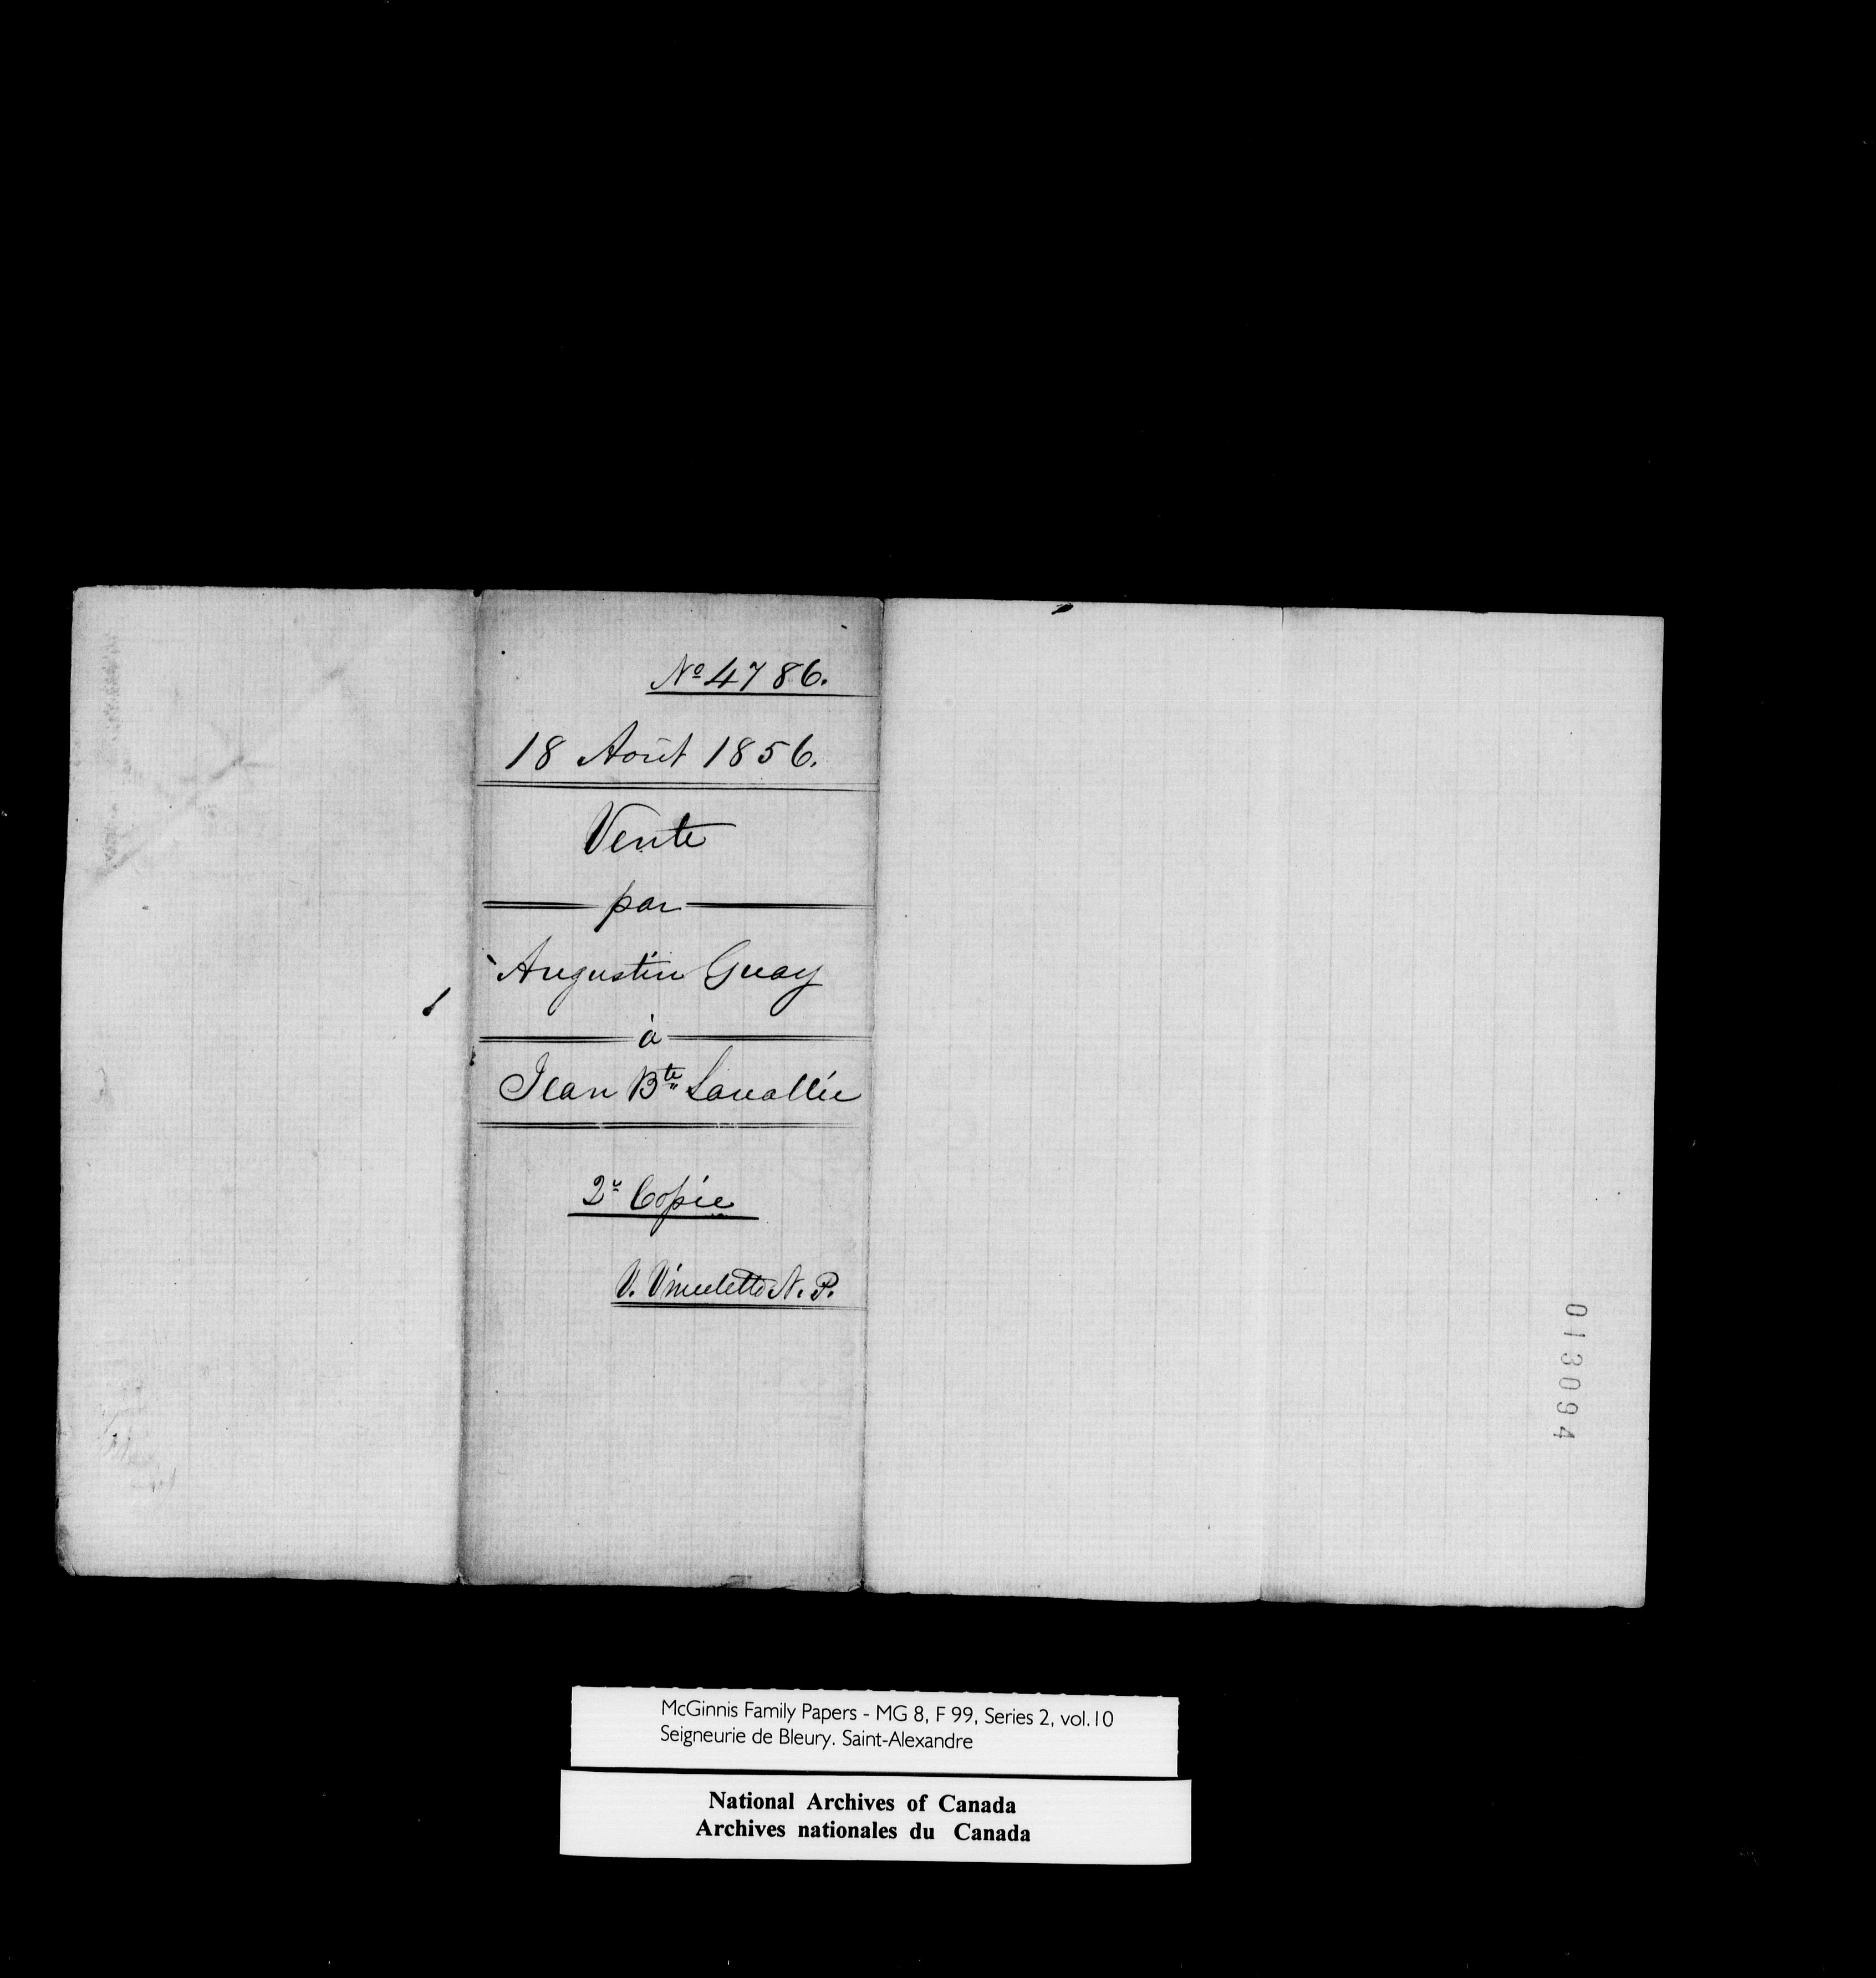 No 4786.
18 Août 1856.
Vente
par
Augustin Guay
à
Jean Bte Lavallée
2e Copie
V. Vincelette N. P.
013094
McGinnis Family Papers - MG 8, F 99, Series 2, vol.10
Seigneurie de Bleury. Saint-Alexandre
National Archives of Canada
Archives nationales du Canada